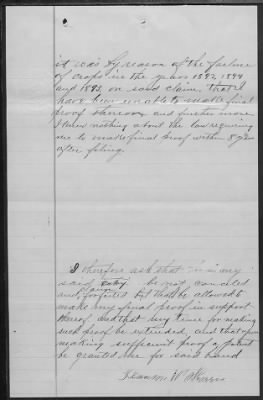 it was by reason of the failure
of crops in the years 1893, 1894
and 1895, on said claim, that I
have been unable to make final
proof thereon, and further more
I knew nothing about the law requiring
me to make final proof within 8 yrs
after filing.
I therefore ask that in my
said entry be not canceled
claim
and forfeited but that I be allowed to
make my final proof in support
thereof and that my time for making
such proof be extended, and that upon
making sufficient proof a patent
be granted me for said land
W